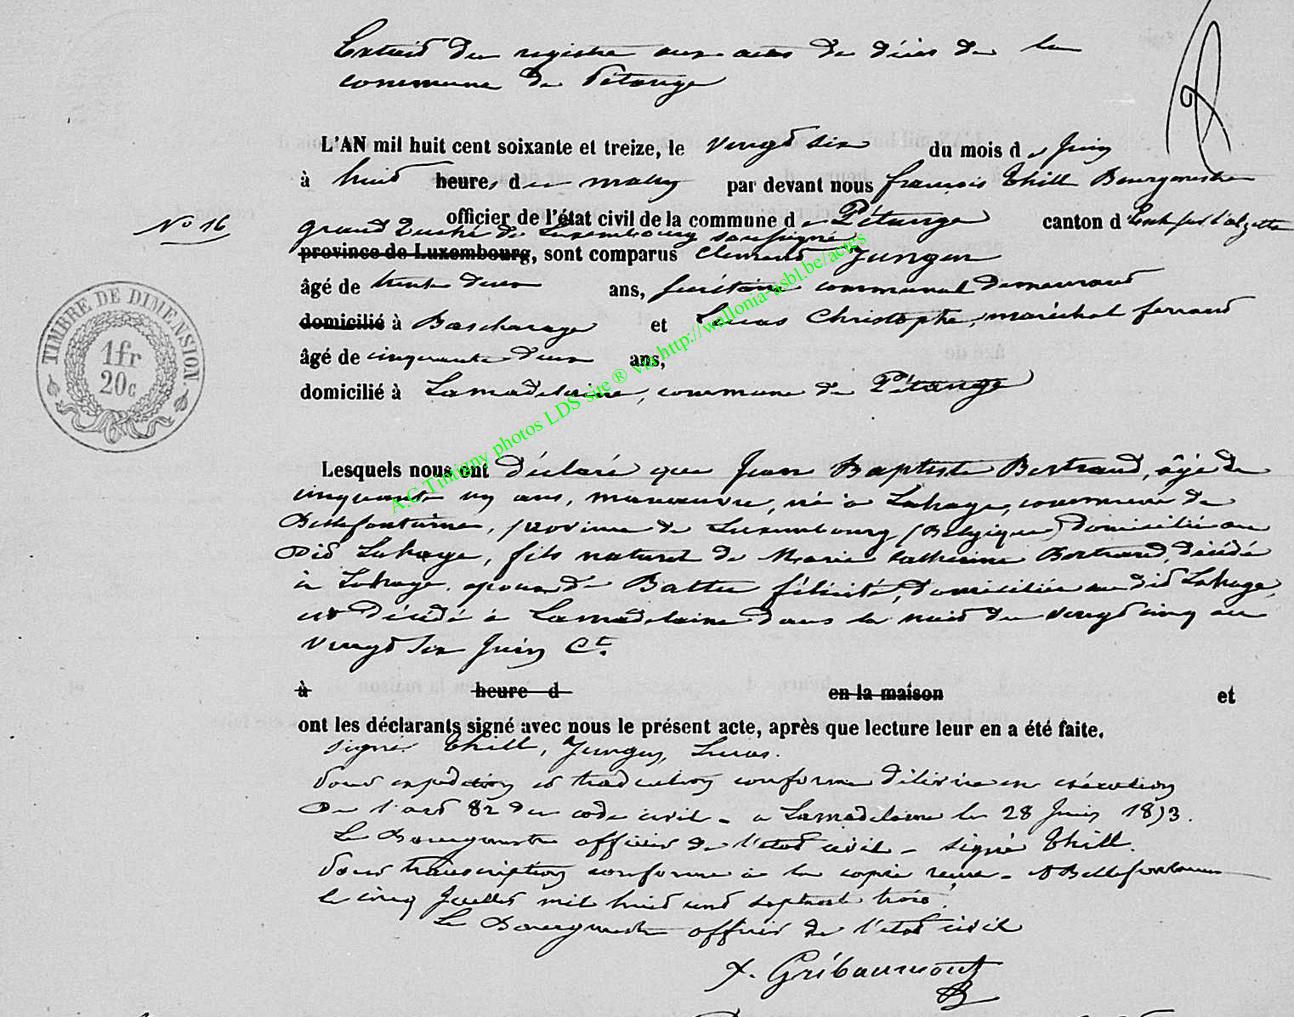 Extrait du registre aux actes de décès de la
commune de Pétange
L'AN mil huit cent soixante et treize, le vingt six du mois de Juin
à huit heures du matin par devant nous françois Thill Bourgmestre
officier de l'état civil de la commune de Pétange canton d'Esch sur l'alzette
No 16
Grand Duché de Luxembourg soussigné
province de Luxembourg, sont comparus Clement Jungen
âgé de trente deux ans, secrétaire communal demeurant
domicilié à Bascharage et Lucas Christophe, maréchal ferrant
âgé de cinquante deux ans,
domicilié à Lamadelaine, commune de Pétange
TIMBRE DE DIMENSION.
1fr
20c
Lesquels nous ont déclaré que Jean Baptiste Bertrand, âgé de
cinquante un ans, manoeuvre, né à Lahage, commune de
Bellefontaine, province de Luxembourg (Belgique) domicilié au
dit Lahage, fils naturel de Marie Catherine Bertrand, décédée
à Lahage, époux de Battu félicité, domiciliée au dit Lahage,
est décédé à Lamadelaine dans la nuit du vingt cinq au
vingt six Juin Ct.
à heure d en la maison et
ont les déclarants signé avec nous le présent acte, après que lecture leur en a été faite.
signé Thill, Jungen, Lucas.
Pour expédition et traduction conforme délivrée en exécution
de l'art 82 du code civil - a Lamadelaine le 28 Juin 1873.
Le Bourgmestre officier de l'état civil - signé Thill.
Pour transcription conforme à la copie reçue - A Bellefontaine
le cinq Juillet mil huit cent septante trois.
Le Bourgmestre officier de l'état civil
Gribaumont
A.C.Tintigny photos LDS site ® via http://wallonia-asbl.be/actes